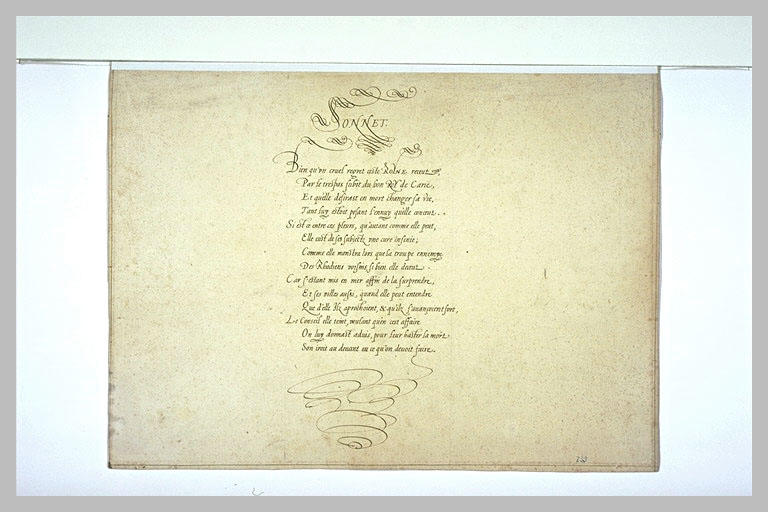 SONNET.
Bien qu'un cruel regret ceste ROINE receut
Par le trespas subit du bon ROY de Carie,
Et qu'elle desirast en mort changer sa vie,
Tant luy estoit pesant l'ennuy qu'elle conceut.
Si est ce entre ces pleurs, qu'autant comme elle peut,
Elle eust de ses subjectz une cure infinie;
Comme elle monstra lors que la troupe ennemye
Des Rhodiens voisins si bien elle deceut.
Car s'estant mis en mer affin de la surprendre,
Et ses villes aussi, quand elle peut entendre
Que d'elle ilz aprochoient, & qu'ilz s'avançoient fort,
Le Conseil elle tent, voulant qu'en cest affaire
On luy donnast advis, pour leur haster la mort
Son iroit au devant ou ce qu'on devoit faire.